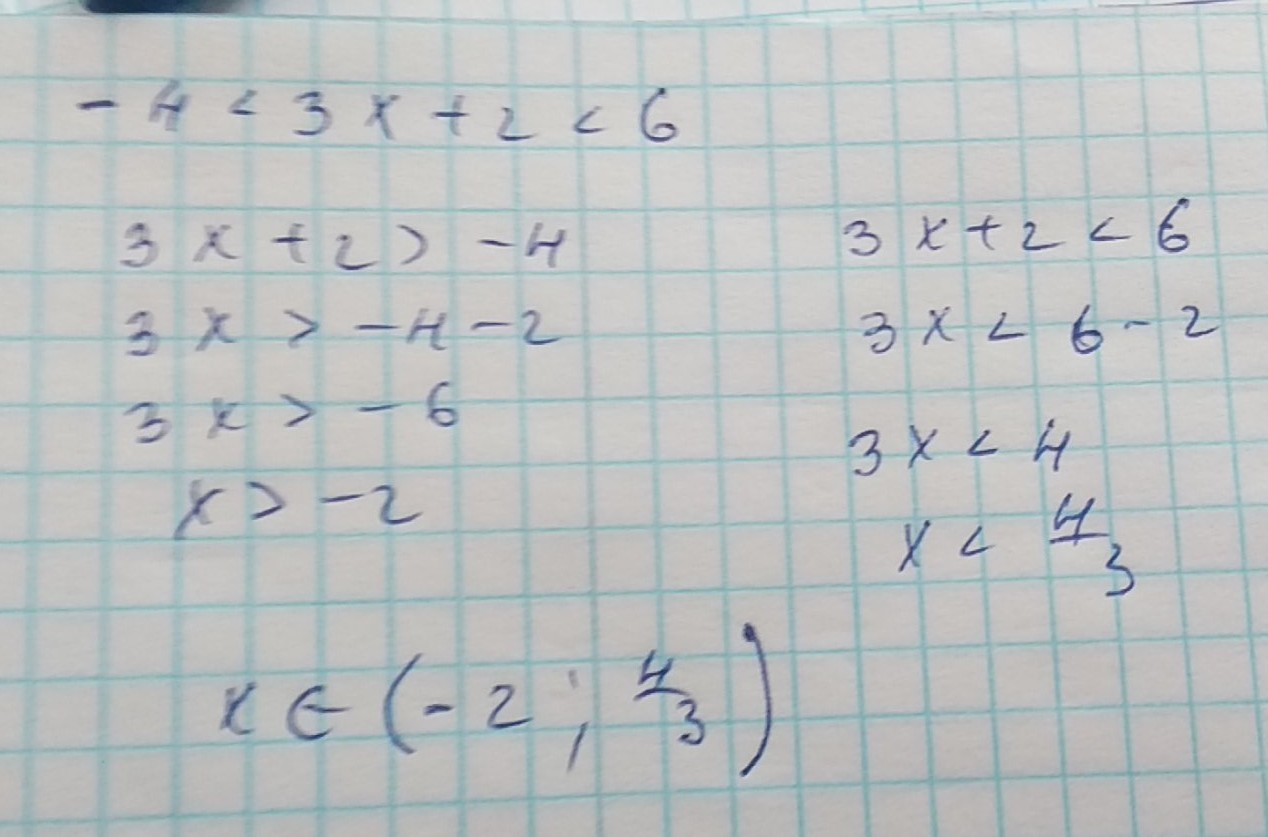 - 4 < 3 x + 2 < 6
3 x + 2 > - 4
3 x > - 4 - 2
3 x > - 6
x > - 2
3 x + 2 < 6
3 x < 6 - 2
3 x < 4
x < 4/3
x ∈ (- 2 ; 4/3)